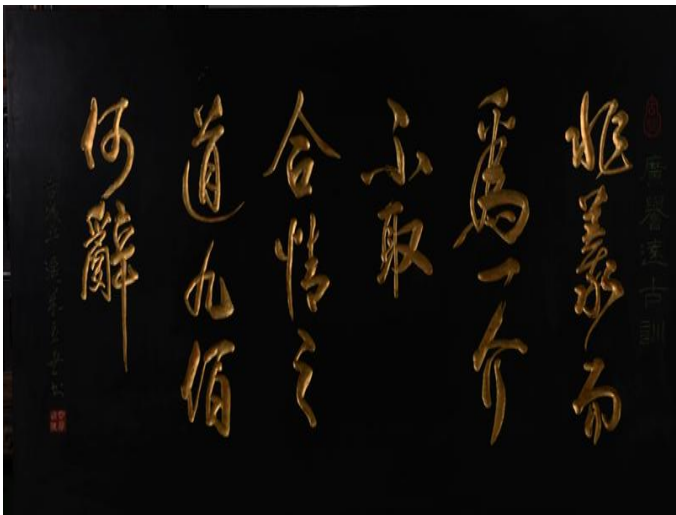 廣譽遠古訓
非義而
爲一介
不取
合情之
道九佰
何辭